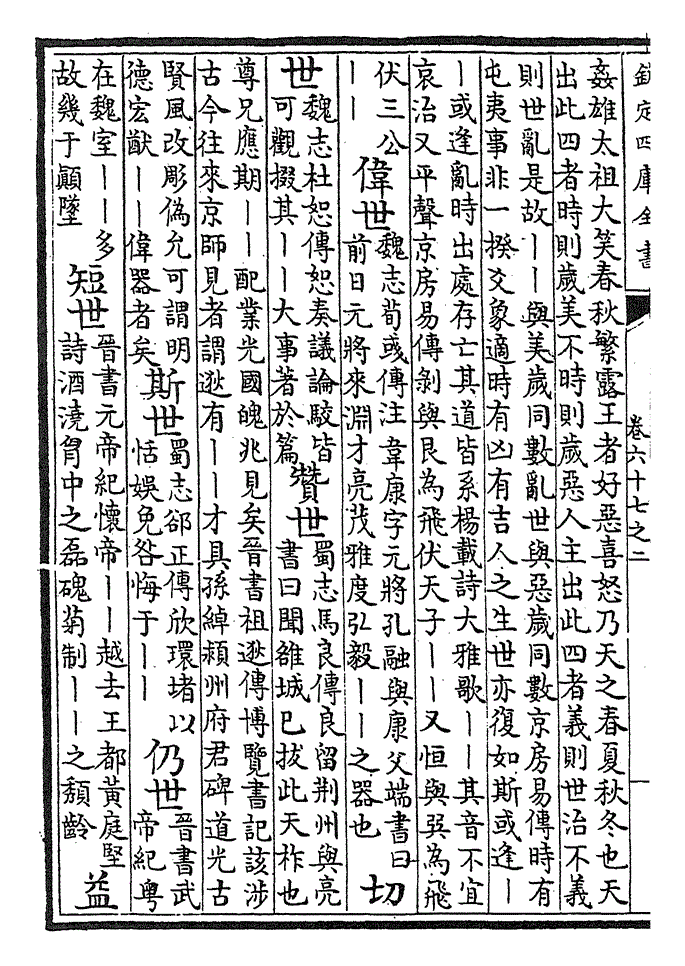 欽定四庫全書
卷六十七之二
姦雄太祖大笑春秋繁露王者好惡喜怒乃天之春夏秋冬也天
出此四者時則歲美不時則歲惡人主出此四者義則世治不義
則世亂是故——與美歲同數亂世與惡歲同數京房易傳時有
屯夷事非一揆爻象適時有凶有吉人之生世亦復如斯或逢—
—或逢亂時出處存亡其道皆系楊載詩大雅歌——其音不宜
哀治又平聲京房易傳剝與艮為飛伏天子——又恒與巽為飛
伏三公
——
偉世
魏志荀彧傳注韋康字元將孔融與康父端書曰
前日元將來淵才亮茂雅度弘毅——之器也
切
世
魏志杜恕傳恕奏議論駮皆
可觀掇其——大事著於篇
贊世
蜀志馬良傳良留荆州與亮
書曰聞雒城已拔此天祚也
尊兄應期——配業光國魄兆見矣晉書祖逖傳博覽書記該涉
古今往來京師見者謂逖有——才具孫綽潁州府君碑道光古
賢風改彫偽允可謂明
德宏猷——偉器者矣
斯世
蜀志郤正傳欣環堵以
恬娛免咎悔于——
仍世
晉書武
帝紀粤
在魏室——多
故幾于顛墜
短世
晉書元帝紀懷帝——越去王都黃庭堅
詩酒澆胷中之磊磈菊制——之頽齡
益